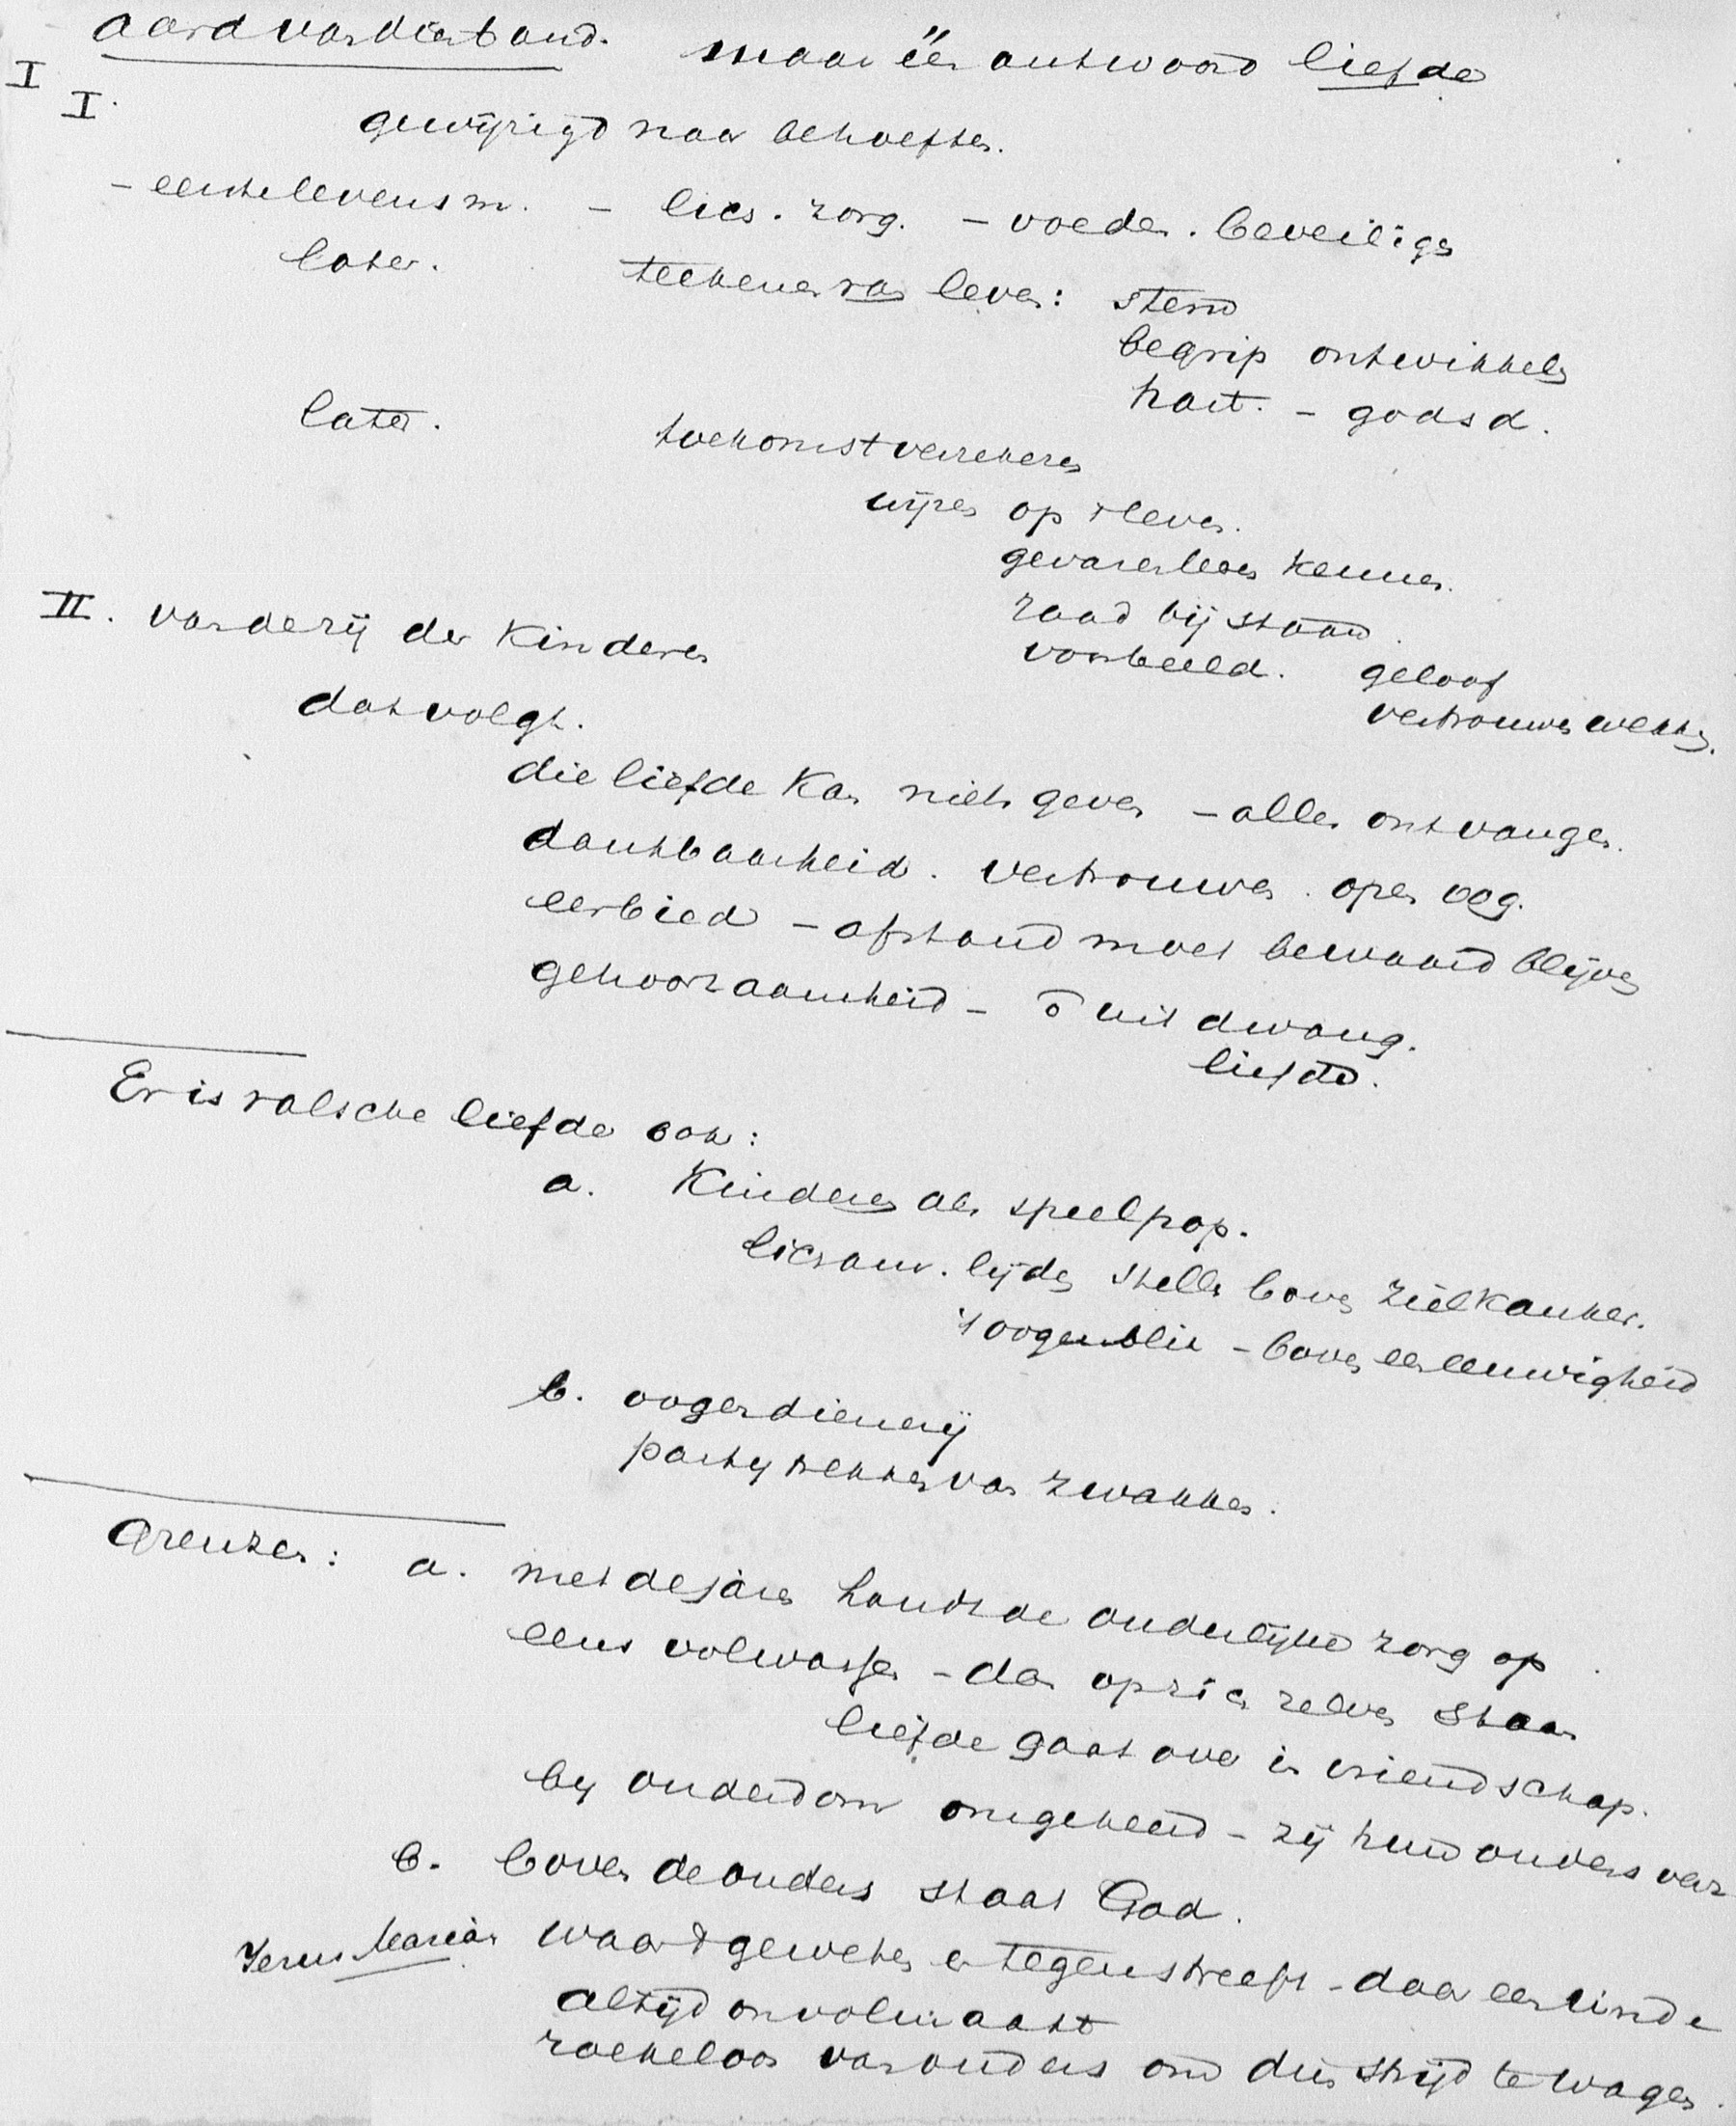 aard van dien band. maar één antwoord liefde
I
I. gewijzigd naar behoeften.
- eerste levensm. - lics. zorg. - voeden. beveiligen
later. teekenen van leven: stem
begrip ontwikkelen
hart. - godsd.
later. toekomst verzekeren
wijzen op 't leven.
gevaren leeren kennen.
raad bijstaan.
voorbeeld. geloof
vertrouwen wekken.
II. van de zij der kinderen
dat volgt.
die liefde kan niets geven - alles ontvangen.
dankbaarheid. vertrouwen. open oog.
eerbied - afstand moet bewaard blijven
gehoorzaamheid - õ uit dwang.
liefde.
Er is valsche liefde ook:
a. Kinderen als speelpop.
lichaam. lijden stellen boven zielkanker.
't oogenblik - boven een eeuwigheid
b. oogendienerij
party trekken van zwakken.
Grenzen: a. met de jaren houdt de ouderlijke zorg op.
eens volwassen - dan op zich zelven staan
liefde gaat over in vriendschap.
by ouderdom omgekeerd - zij hun ouders verz
b. boven de ouders staat God.
Jezus Maria. waar 't geweten er tegenstreeft - daar een einde
altijd onvolmaakt
roekeloos van ouders om dien strijd te wagen.